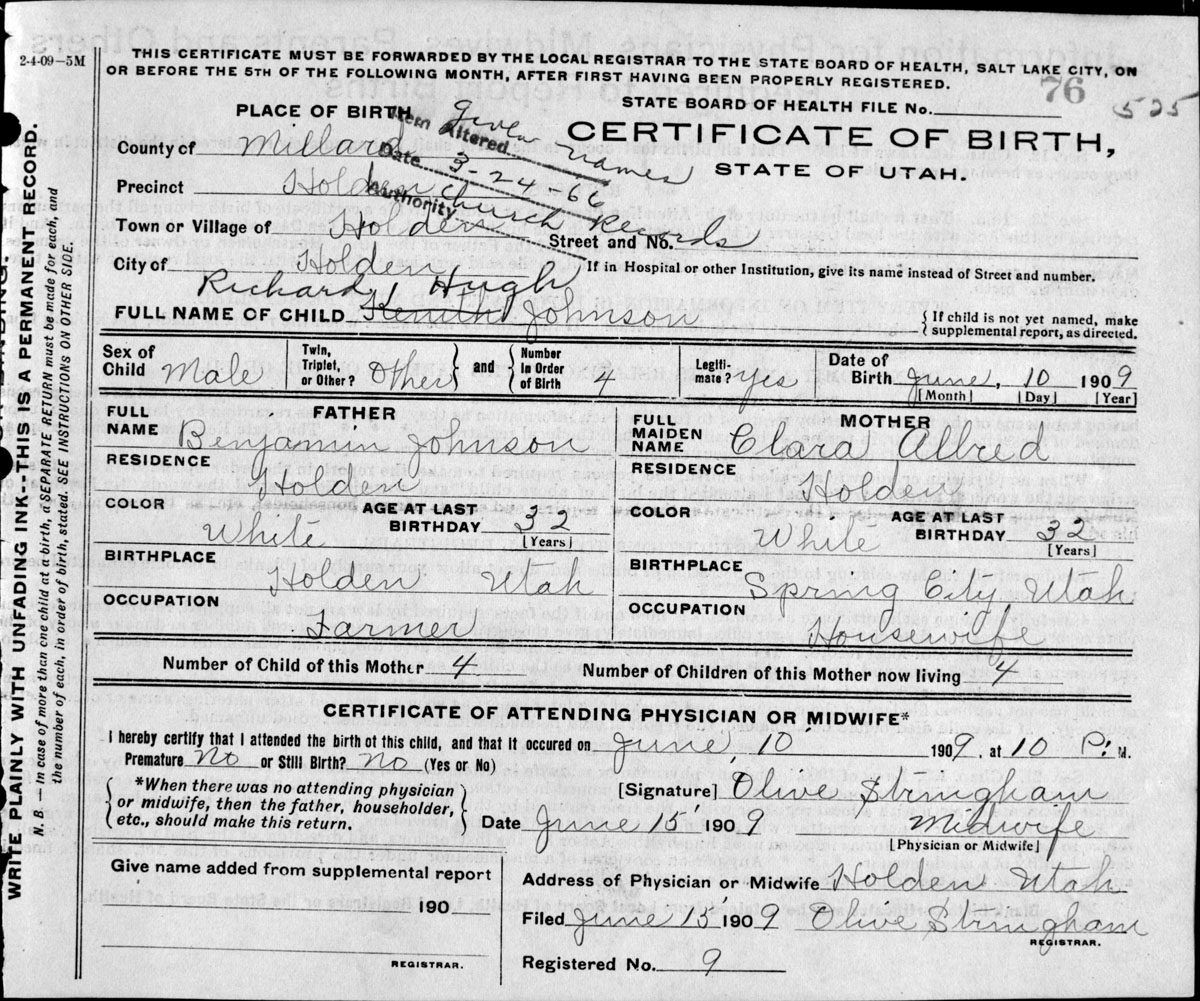 2-4-09—5M
THIS CERTIFICATE MUST BE FORWARDED BY THE LOCAL REGISTRAR TO THE STATE BOARD OF HEALTH, SALT LAKE CITY, ON
OR BEFORE THE 5TH OF THE FOLLOWING MONTH, AFTER FIRST HAVING BEEN PROPERLY REGISTERED.
STATE BOARD OF HEALTH FILE No. 76 525
PLACE OF BIRTH
CERTIFICATE OF BIRTH,
STATE OF UTAH.
Item Altered Given names
Date 3-24-66
Authority Church Records
County of Millard
Precinct Holden
Town or Village of Holden
Street and No.
City of Holden
If in Hospital or other Institution, give its name instead of Street and number.
Richard Hugh
FULL NAME OF CHILD Kenith Johnson
{ If child is not yet named, make
supplemental report, as directed.
Sex of Child Male Twin, Triplet, or Other? Other and Number in Order of Birth 4 Legiti-mate? yes Date of Birth June, 10 1909
[Month] [Day] [Year]
FATHER
FULL NAME Benjamin Johnson
RESIDENCE Holden
COLOR White AGE AT LAST BIRTHDAY 32
[Years]
BIRTHPLACE Holden Utah
OCCUPATION Farmer
MOTHER
FULL MAIDEN NAME Clara Allred
RESIDENCE Holden
COLOR White AGE AT LAST BIRTHDAY 32
[Years]
BIRTHPLACE Spring City, Utah
OCCUPATION Housewife
Number of Child of this Mother 4 Number of Children of this Mother now living 4
CERTIFICATE OF ATTENDING PHYSICIAN OR MIDWIFE*
I hereby certify that I attended the birth of this child, and that it occured on June, 10, 1909, at 10 P. M.
Premature No or Still Birth? No (Yes or No)
*When there was no attending physician
or midwife, then the father, householder,
etc., should make this return.
[Signature] Olive Stringham
Date June 15 1909 Midwife
[Physician or Midwife]
Give name added from supplemental report
190
REGISTRAR.
Address of Physician or Midwife Holden Utah
Filed June 15 1909 Olive Stringham
REGISTRAR.
Registered No. 9
WRITE PLAINLY WITH UNFADING INK--THIS IS A PERMANT RECORD.
N. B. — In case of more than one child at a birth, a SEPARATE RETURN must be made for each, and
the number of each, in order of birth, stated. SEE INSTRUCTIONS ON OTHER SIDE.